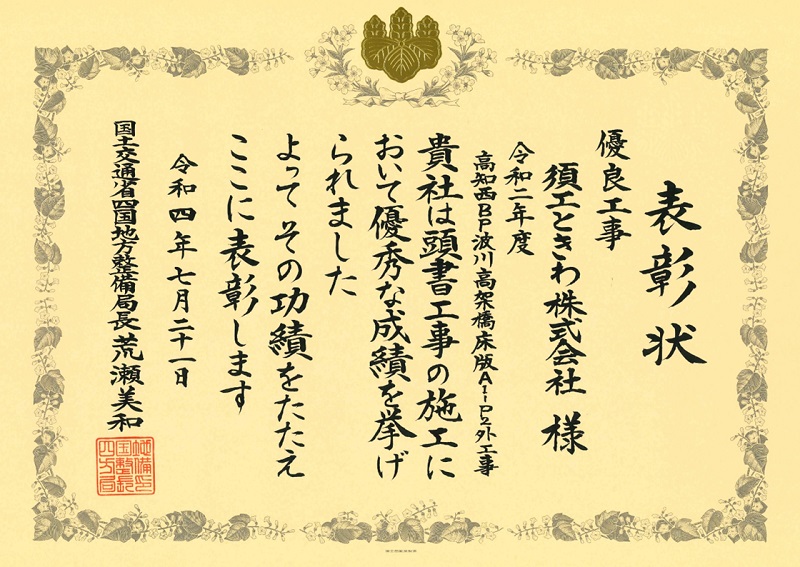 表彰状
優良工事
須工ときわ株式会社 様
令和二年度
高知西BP波川高架橋床版A1-P2外工事
貴社は頭書工事の施工に
おいて優秀な成績を挙げ
られました
よって その功績をたたえ
ここに表彰します
令和四年七月二十一日
国土交通省四国地方整備局長 荒瀬美和